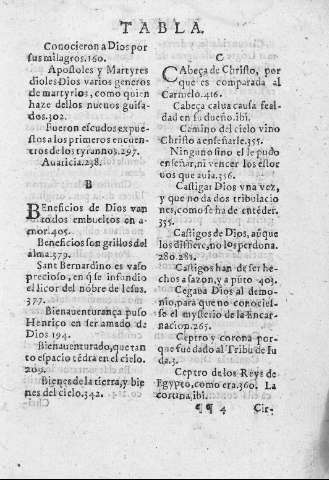 TABLA.
Conocieron a Dios por
sus milagros. 160.
Apostoles y Martyres
dioles Dios varios generos
de martyrios, como quien
haze dellos nueuos guisa-
dos. 302.
Fueron escudos expue-
stos a los primeros encuen
tros de los tyrannos. 297.
Auaricia. 238.
B
Beneficios de Dios van
todos embueltos en a-
mor. 405.
Beneficios son grillos del
alma. 379.
Sant Bernardino es vaso
precioso, en que se infundio
el licor del nõbre de Iesus.
377.
Bienauenturança puso
Henrico en ser amado de
Dios 194.
Bienauenturado, que tan
to espacio tẽdra en el cielo.
209.
Bienes de la tierra, y bie
nes del cielo. 342.
C
Cabeça de Christo, por
que es comparada al
Carmelo. 416.
Cabeça calua causa feal-
dad en su dueño. ibi.
Camino del cielo vino
Christo a enseñarle. 355.
Ninguno sino el le pudo
enseñar, ni vencer los estor
uos que auia. 356.
Castigar Dios vna vez,
y que no da dos tribulacio
nes, como se ha de entẽder.
355.
Castigos de Dios, aũque
los difiere, no los perdona.
280. 281.
Castigos han de ser he-
chos a sazon, y a pũto 403.
Cegaua Dios al demo-
nio, para que no conocies-
se el mysterio de la Encar-
nacion. 265.
Ceptro y corona por-
que fue dado al Tribu de Iu
da. 3.
Ceptro de los Reys de
Egypto, como era. 360. La
corona, ibi.
¶¶ 4 Cir-